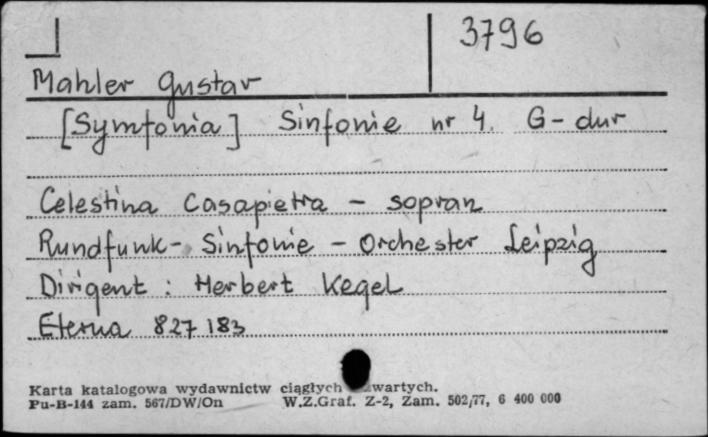 3796
Mahler Gustav
[Symfonia] Sinfonie nr 4. G-dur
Celestina Casapietra - sopran
Rundfunk - Sinfonie - Orchester Leipzig
Dirigent : Herbert Kegel
Eterna 827 183
Karta katalogowa wydawnictw ciągłych wartych.
Pu-B-144 zam. 567/DW/On W.Z.Graf. Z-2, Zam. 502/77, 6 400 000